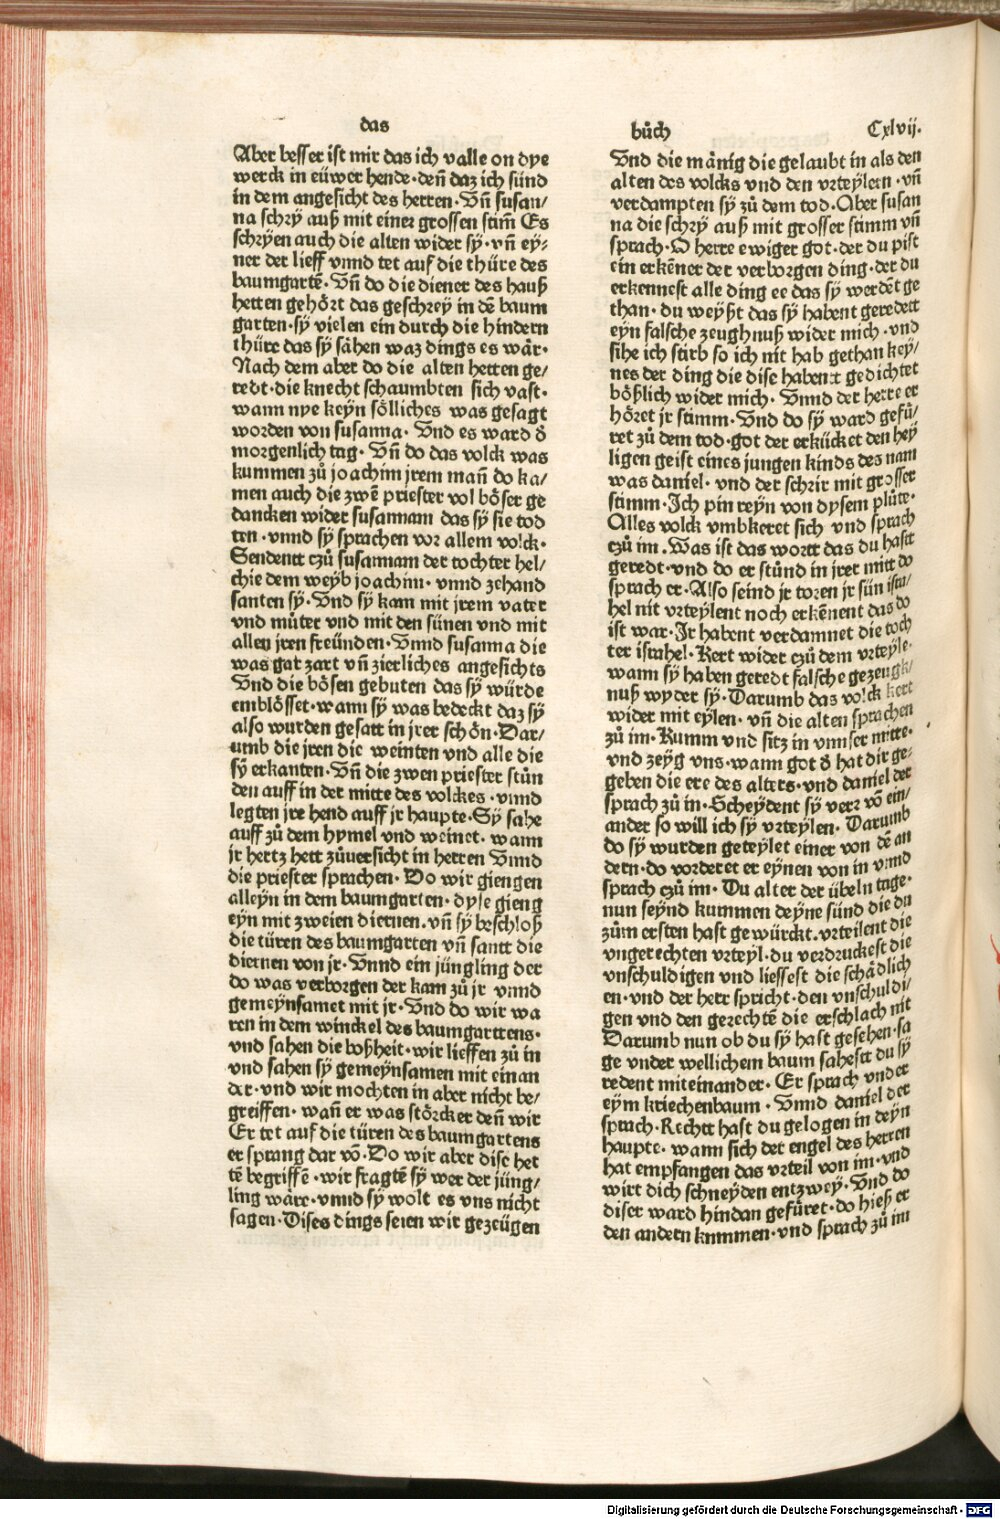 das
bůch
Cxlvij.
Aber besser ist mir das ich valle on dye
werck in eüwer hende·deñ daz ich sünd
in dem angesicht des herren·Vñ susan/
na schrÿ auß mit einer grossen stim̃ Es
schrÿen auch die alten wider sÿ·vñ eÿ/
ner der lieff vnnd tet auf die thüre des
baumgartẽ·Vñ do die diener des hauß
hetten gehört das geschreÿ in dẽ baum
garten·sÿ vielen ein durch die hindern
thüre das sÿ sähen waz dings es wär·
Nach dem aber do die alten hetten ge/
redt·die knecht schaumbten sich vast·
wann nye keÿn sölliches was gesagt
worden von susanna· Vnd es ward ð
morgenlich tag· Vñ do das volck was
kummen zů joachim jrem mañ do ka/
men auch die zwẽ priester vol böser ge
dancken wider susannam das sÿ sie tod
ten·vnnd sÿ sprachen vor allem volck·
Sendent czů susannam der tochter hel/
chie dem weÿb joachim· vnnd zehand
santen sÿ·Vnd sÿ kam mit jrem vater
vnd můter vnd mit den sünen vnd mit
allen jren freünden·Vnnd susanna die
was gar zart vñ zierliches angesichts
Vnd die bösen gebuten das sÿ würde
emblösset·wann sÿ was bedeckt daz sÿ
also wurden gesatt in jrer schön·Dar/
umb die jren die weinten vnd alle die
sÿ erkanten·Vñ die zwen priester stůn
den auff in der mitte des volckes·vnnd
legten jre hend auff jr haupte·Sÿ sahe
auff zů dem hymel vnd weinet· wann
jr hertz hett zůuersicht in herren Vnnd
die priester sprachen· Do wir giengen
alleÿn in dem baumgarten·dyse gieng
eÿn mit zweien diernen·vñ sÿ beschloß
die türen des baumgarten vñ santt die
diernen von jr·Vnnd ein jüngling der
do was verborgen der kam zů jr vnnd
gemeÿnsamet mit jr·Vnd do wir wa
ren in dem winckel des baumgarttens·
vnd sahen die boßheit·wir lieffen zů in
vnd sahen sÿ gemeÿnsamen mit einan
der·vnd wir mochten in aber nicht be/
greiffen·wañ er was störcker deñ wir
Er tet auf die türen des baumgartens
er sprang dar võ·Do wir aber dise het
tẽ begriffẽ·wir fragtẽ sÿ wer der jüng/
ling wäre·vnnd sÿ wolt es vns nicht
sagen·Dises dings seien wir gezeügen
Vnd die mänig die gelaubt in als den
alten des volcks vnd den vrteÿlern·vñ
verdampten sÿ zů dem tod·Aber susan
na die schrÿ auß mit grosser stimm vñ
sprach·O herre ewiger got·der du pist
ein erkẽner der verborgen ding·der du
erkennest alle ding ee das sÿ werdẽt ge
than·du weÿßt das sÿ habent geredett
eÿn falsche zeughnuß wider mich·vnd
sihe ich stirb so ich nit hab gethan keÿ/
nes der ding die dise habent gedichtet
bößlich wider mich· Vnnd der herre er
höret jr stimm·Vnd do sÿ ward gefü/
ret zů dem tod·got der erkücket den heÿ
ligen geist eines jungen kinds des nam
was daniel·vnd der schrir mit grosser
stimm·Ich pin reÿn von dysem plůte·
Alles volck vmbkeret sich vnd sprach
czů im·Was ist das wortt das du hastt
geredt·vnd do er stůnd in jrer mitt do
sprach er·Also seind jr toren jr sün isra/
hel nit vrteÿlent noch erkẽnent das do
ist war·Ir habent verdamnet die toch
ter israhel·Kert wider czů dem vrteÿle·
wann sÿ haben geredt falsche gezeugk/
nuß wyder sÿ·Darumb das volck kert
wider mit eÿlen·vñ die alten sprachen
zů im·Kumm vnd sitz in vnnser mitte·
vnd zeÿg vns·wann got ð hat dir ge/
geben die ere des alters·vnd daniel der
sprach zů in·Scheÿdent sÿ verr võ ein/
ander so will ich sÿ vrteÿlen· Darumb
do sÿ wurden geteÿlet einer von dẽ an
dern·do vorderet er eÿnen von in vnnd
sprach czů im·Du alter der übeln tage·
nun seÿnd kummen deÿne sünd die du
zům ersten hast gewürckt·vrteilent die
vngerechten vrteÿl·du verdruckest die
vnschuldigen vnd liessest die schädlich
en·vnd der herr spricht·den vnschuldi/
gen vnd den gerechtẽ die erschlach nit
Darumb nun ob du sÿ hast gesehen·sa
ge vnder wellichem baum sahestt du sÿ
redent miteinander· Er sprach vnder
eÿm kriechenbaum· Vnnd daniel der
sprach·Rechtt hast du gelogen in deÿn
haupte· wann sich der engel des herren
hat empfangen das vrteil von im·vnd
wirt dich schneÿden entzweÿ·Vnd do
diser ward hindan gefůret·do hieß er
den andern kummen·vnd sprach zů im
Digitalisierung gefördert durch die Deutsche Forschungsgemeinschaft - DFG